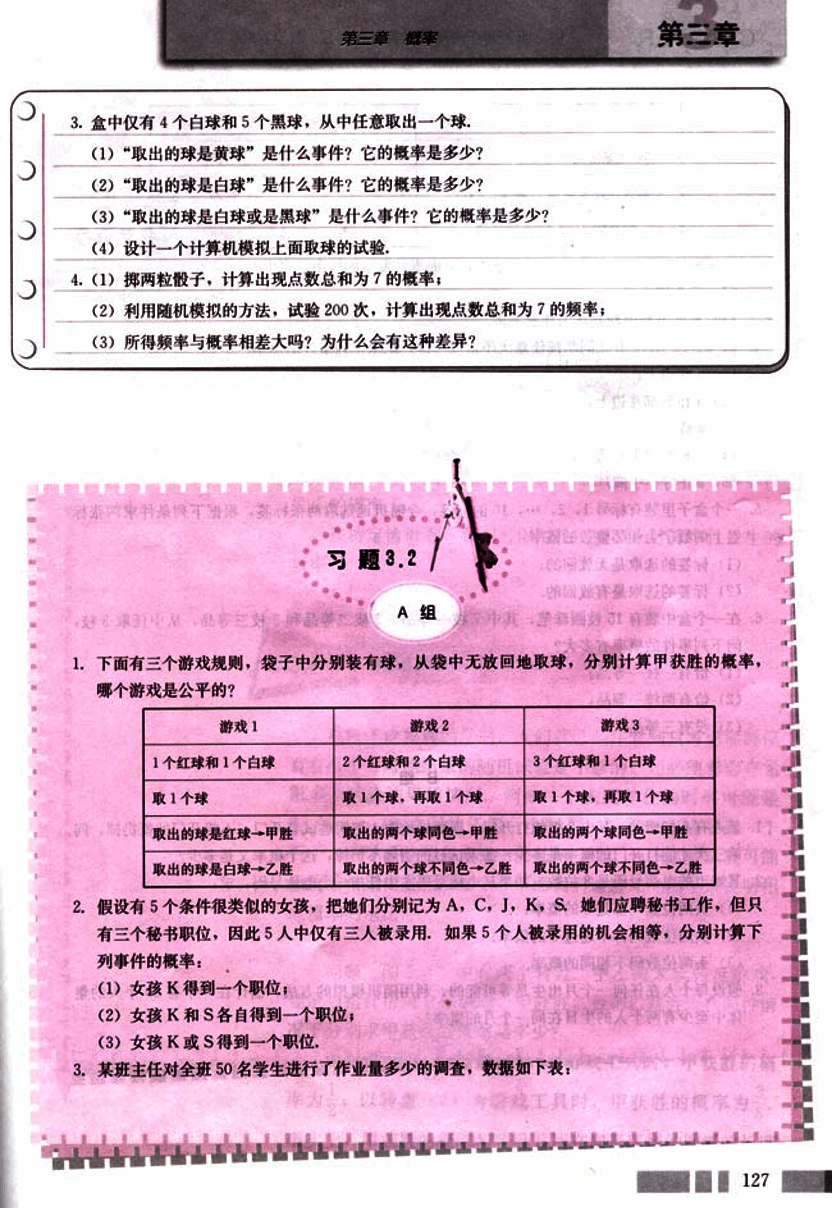 第三章 概率
第三章
3. 盒中仅有 4 个白球和 5 个黑球，从中任意取出一个球.
（1）“取出的球是黄球”是什么事件？它的概率是多少？
（2）“取出的球是白球”是什么事件？它的概率是多少？
（3）“取出的球是白球或是黑球”是什么事件？它的概率是多少？
（4）设计一个计算机模拟上面取球的试验.
4.（1）掷两粒骰子，计算出现点数总和为 7 的概率；
（2）利用随机模拟的方法，试验 200 次，计算出现点数总和为 7 的频率；
（3）所得频率与概率相差大吗？为什么会有这种差异？
习 题 3.2
A 组
1. 下面有三个游戏规则，袋子中分别装有球，从袋中无放回地取球，分别计算甲获胜的概率，
哪个游戏是公平的？
游戏 1 游戏 2 游戏 3
1 个红球和 1 个白球 2 个红球和 2 个白球 3 个红球和 1 个白球
取 1 个球 取 1 个球，再取 1 个球 取 1 个球，再取 1 个球
取出的球是红球→甲胜 取出的两个球同色→甲胜 取出的两个球同色→甲胜
取出的球是白球→乙胜 取出的两个球不同色→乙胜 取出的两个球不同色→乙胜
2. 假设有 5 个条件很类似的女孩，把她们分别记为 A，C，J，K，S. 她们应聘秘书工作，但只
有三个秘书职位，因此 5 人中仅有三人被录用. 如果 5 个人被录用的机会相等，分别计算下
列事件的概率：
（1）女孩 K 得到一个职位；
（2）女孩 K 和 S 各自得到一个职位；
（3）女孩 K 或 S 得到一个职位.
3. 某班主任对全班 50 名学生进行了作业量多少的调查，数据如下表：
127